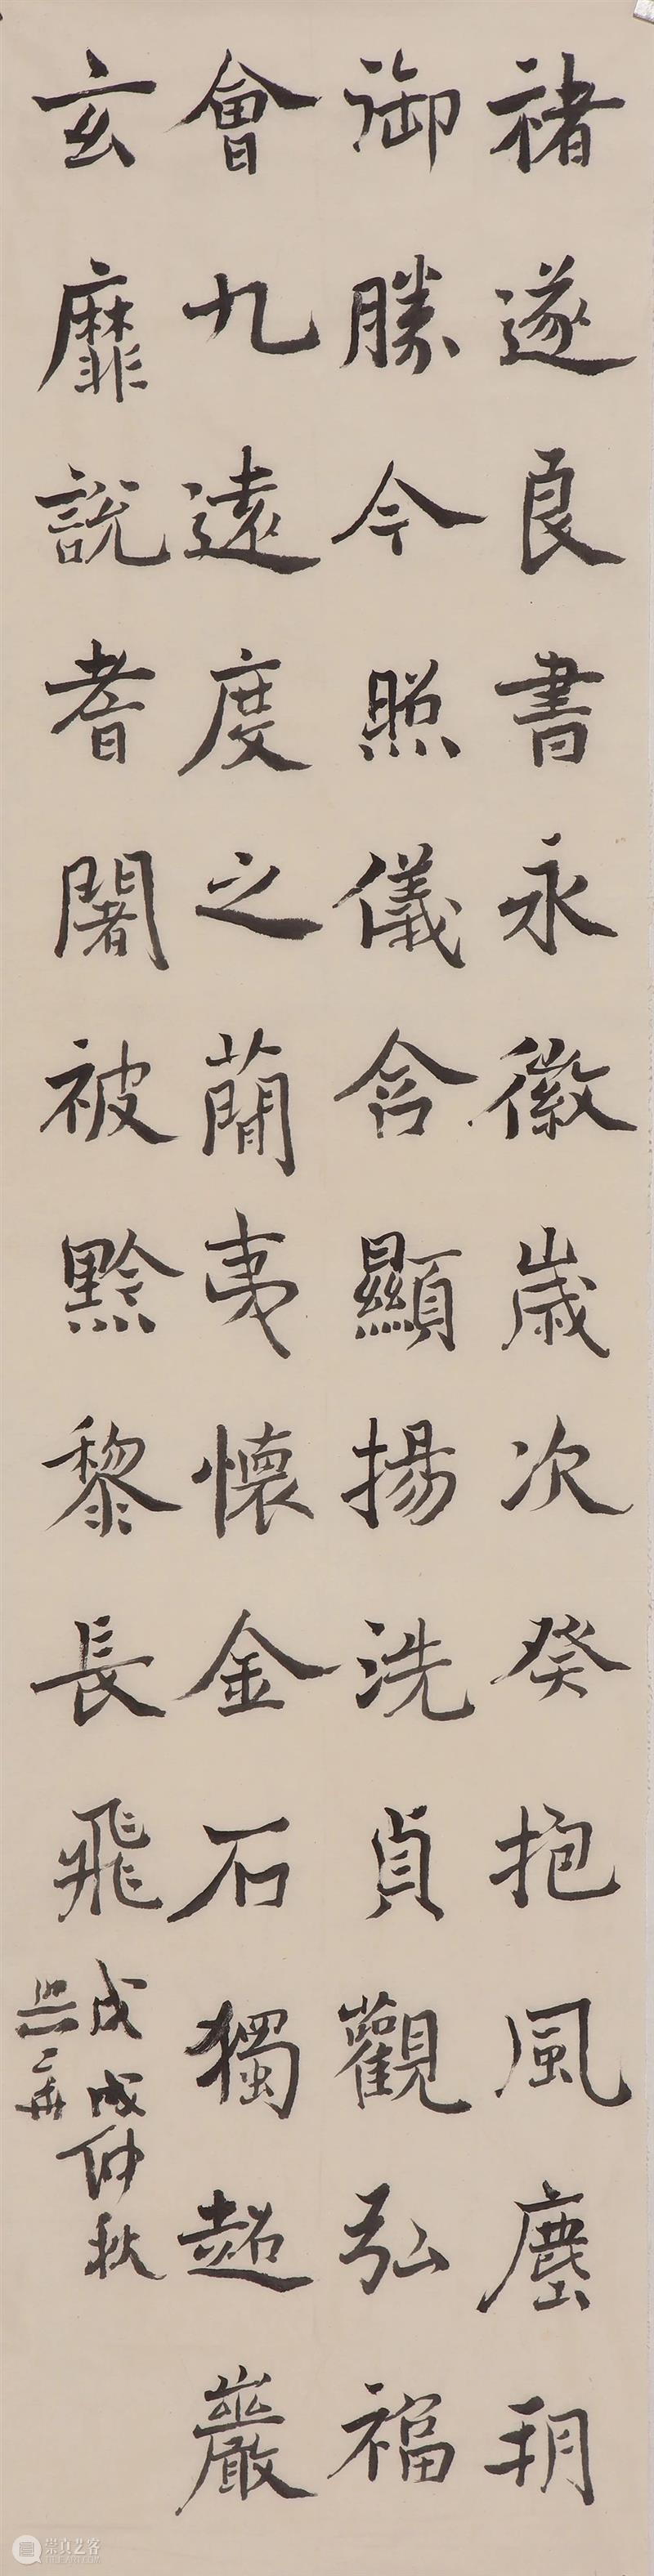 褚遂良書永徽歲次癸抱風塵玥
御勝今照儀含顯揚洗貞觀弘福
會九遠度之蕳夷懷金石獨超巖
玄靡說耆闍被黔黎長飛
戊戌仲秋
崇真艺客